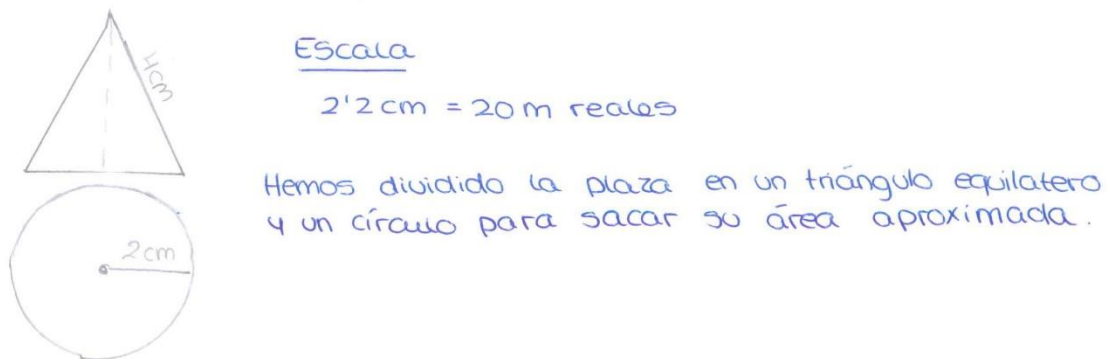 4cm
Escala
2'2 cm = 20 m reales
Hemos dividido la plaza en un triángulo equilatero
y un círculo para sacar su área aproximada.
2cm